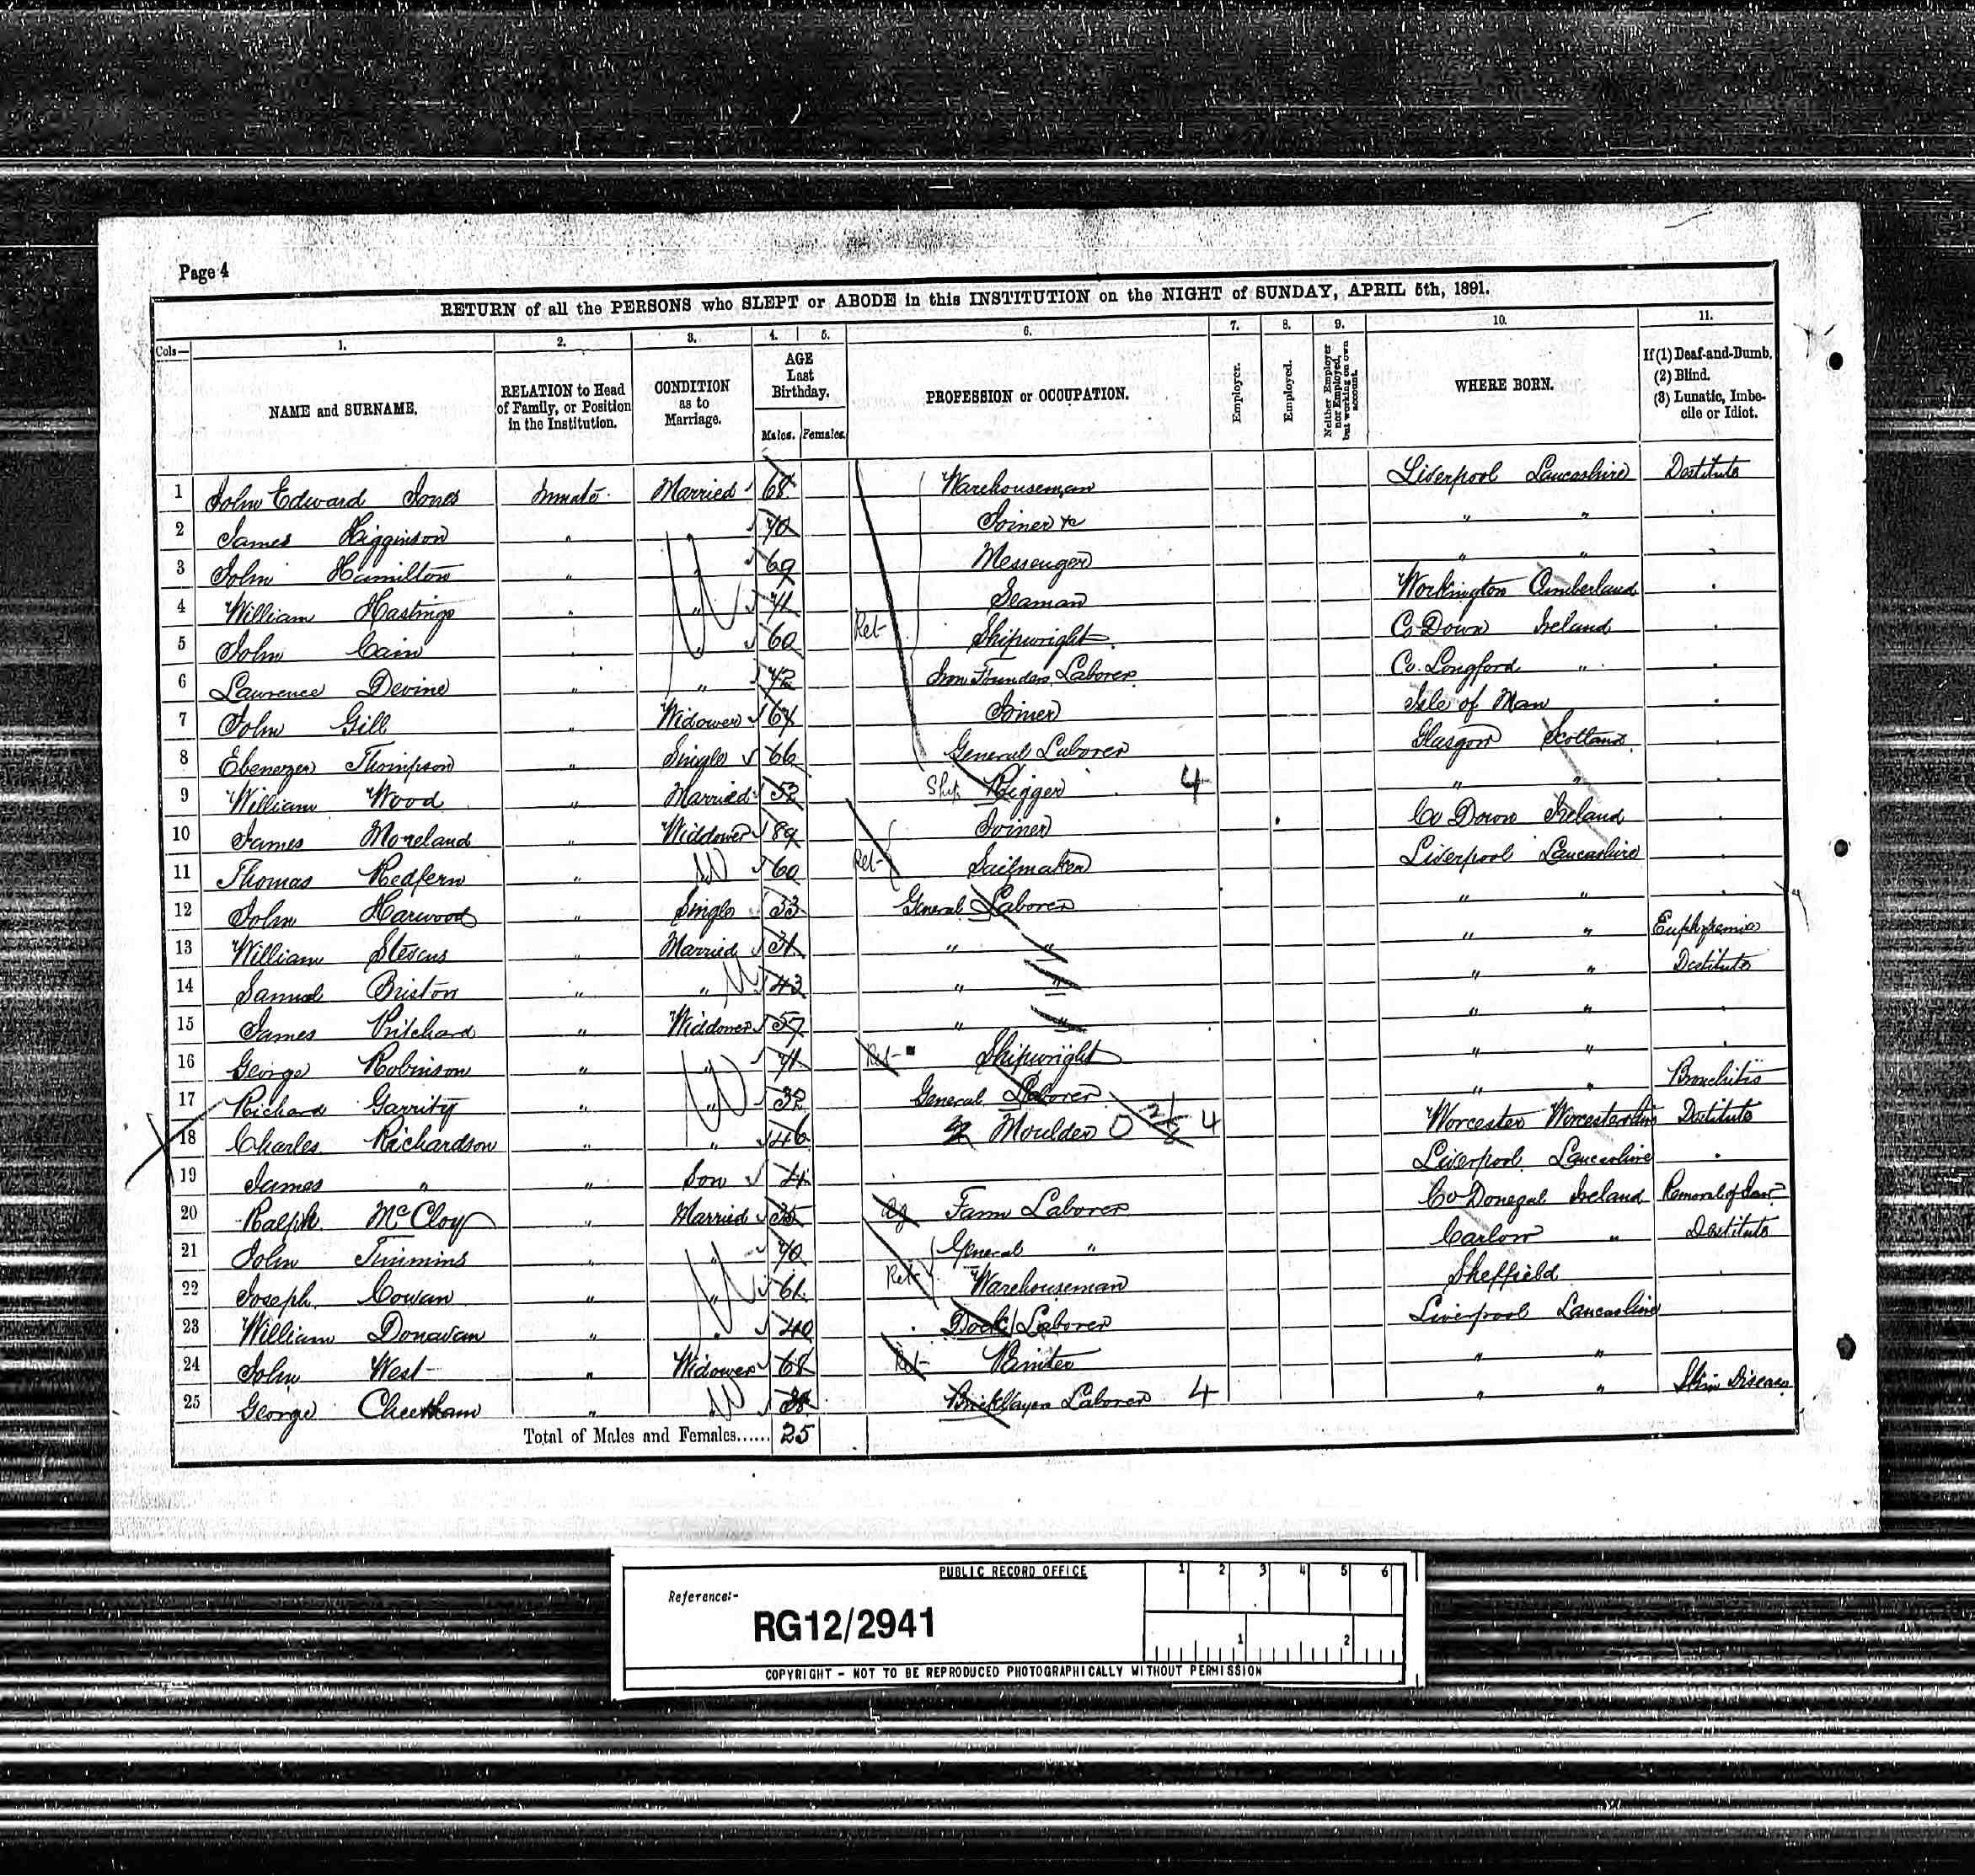 Page 4
RETURN of all the PERSONS who SLEPT or ABODE in this INSTITUTION on the NIGHT of SUNDAY, APRIL 5th, 1891.
Cols— 1. 2. 3. 4. 5. 6. 7. 8. 9. 10. 11.
NAME and SURNAME. RELATION to Head of Family, or Position in the Institution. CONDITION as to Marriage. AGE Last Birthday. Males. Females. PROFESSION or OCCUPATION. Employer. Employed. Neither Employer nor Employed, but working on own account. WHERE BORN. If (1) Deaf-and-Dumb. (2) Blind. (3) Lunatic, Imbecile or Idiot.
1 John Edward Jones Inmate Married 68 Warehouseman Liverpool Lancashire Destitute
2 James Higginson " 70 Joiner &c " "
3 John Hamilton " 69 Messenger " "
4 William Hastings " " 71 Seaman Workington Cumberland
5 John Cain " " 60 Ret- Shipwright Co Down Ireland
6 Lawrence Devine " " 72 Iron Founders Laborer Co. Longford "
7 John Gill " Widower 64 Joiner Isle of Man
8 Ebenezer Thompson " Single 66 General Laborer Glasgow Scotland
9 William Wood " Married 52 Ship Rigger 4 " "
10 James Moreland " Widdower 89 Joiner Co Down Ireland
11 Thomas Redfern " " 60 Ret- Sailmaker Liverpool Lancashire
12 John Harwood " Single 33 General Laborer " "
13 William " Married 31 " " " "
14 Samuel Briston " " 43 " " " " Destitute
15 James Pritchard " Widdower 57 " " " "
16 George Robinson " " 71 Ret- Shipwright " "
17 Richard Garrity " " 32 General Laborer " " Bronchitis
18 Charles Richardson " " 46 Moulder 4 Worcester Worcestershire Destitute
19 James " " Son 4 Liverpool Lancashire
20 Ralph McCloy " Married 35 Ag Farm Laborer Co Donegal Ireland Removal of
21 John Timmins " " 70 General " Carlow " Destitute
22 Joseph Cowan " " 61 Ret- Warehouseman Sheffield
23 William Donavan " " 40 Dock Laborer Liverpool Lancashire
24 John West " Widower 68 Ret- Painter " "
25 George Cheetham " " 38 Bricklayers Laborer 4 " " Skin Disease
Total of Males and Females...... 25
PUBLIC RECORD OFFICE 1 2 3 4 5 6
Reference:-
RG12/2941
1 2
COPYRIGHT - NOT TO BE REPRODUCED PHOTOGRAPHICALLY WITHOUT PERMISSION